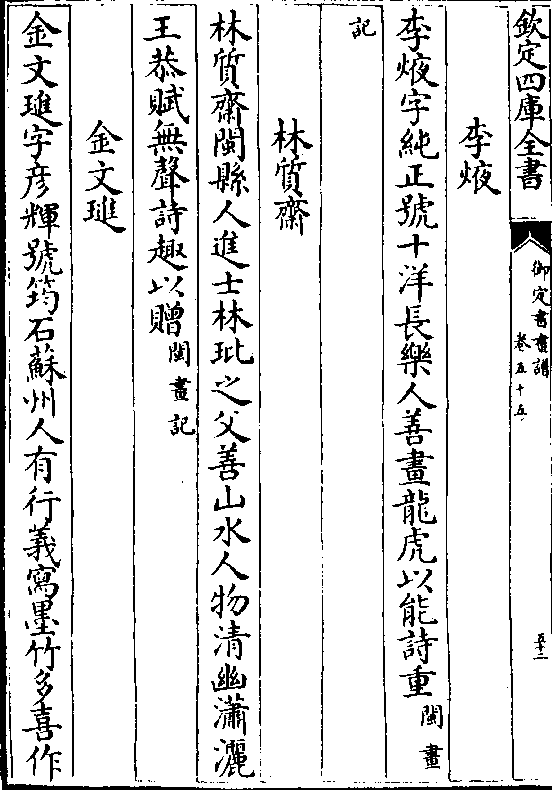 欽定四庫全書
御定書畫譜
卷五十五
五十二
李焲
李焲字純正號十洋長樂人善畫龍虎以能詩重閩畫
記
林質齋
林質齋閩縣人進士林玭之父善山水人物清幽瀟灑
王恭賦無聲詩趣以贈閩畫記
金文璡
金文璡字彦輝號筠石蘇州人有行義寫墨竹多喜作